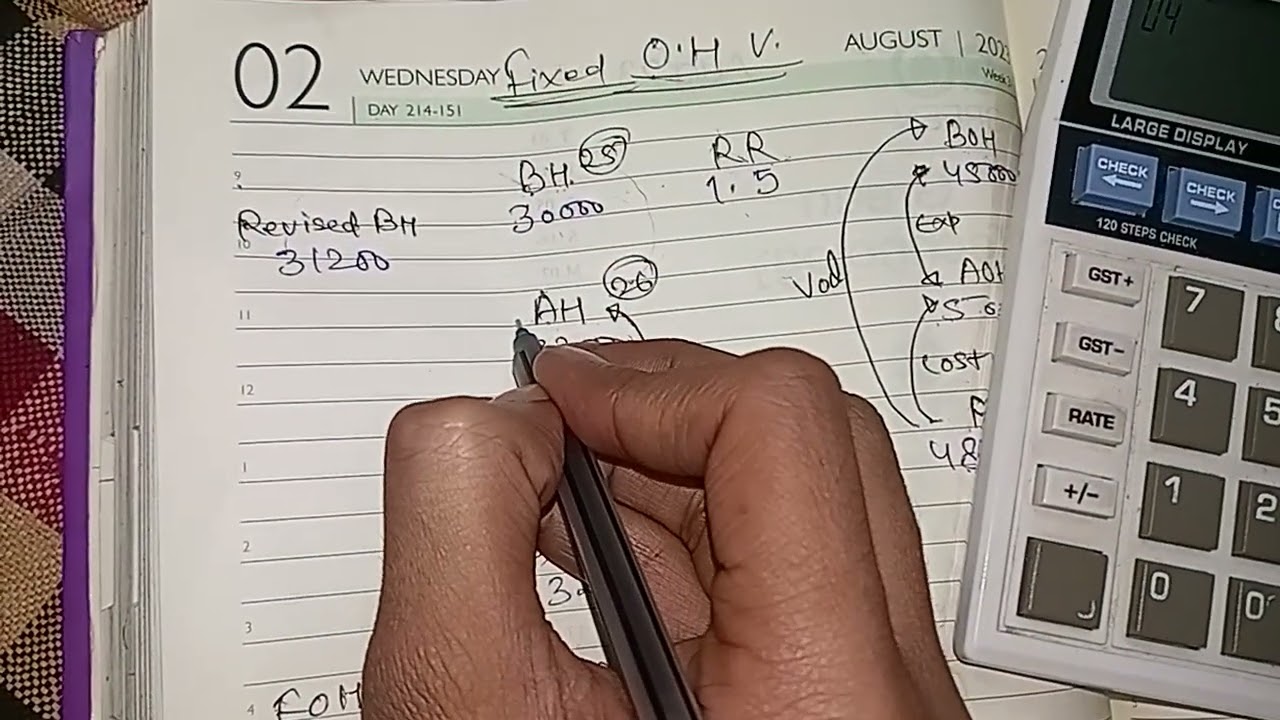 02 WEDNESDAY Fixed O.H V. AUGUST | 202
DAY 214-151
Week
BH. 25 RR BOH
9 30000 1.5 45000
Revised BH
10 31200
Exp
Vol
26 AOH
11 AH
Cost
12
48
1
2
3
FOH
4
04
LARGE DISPLAY
CHECK CHECK
120 STEPS CHECK
GST+ 7
GST- 4 5
RATE
+/- 1 2
0 0